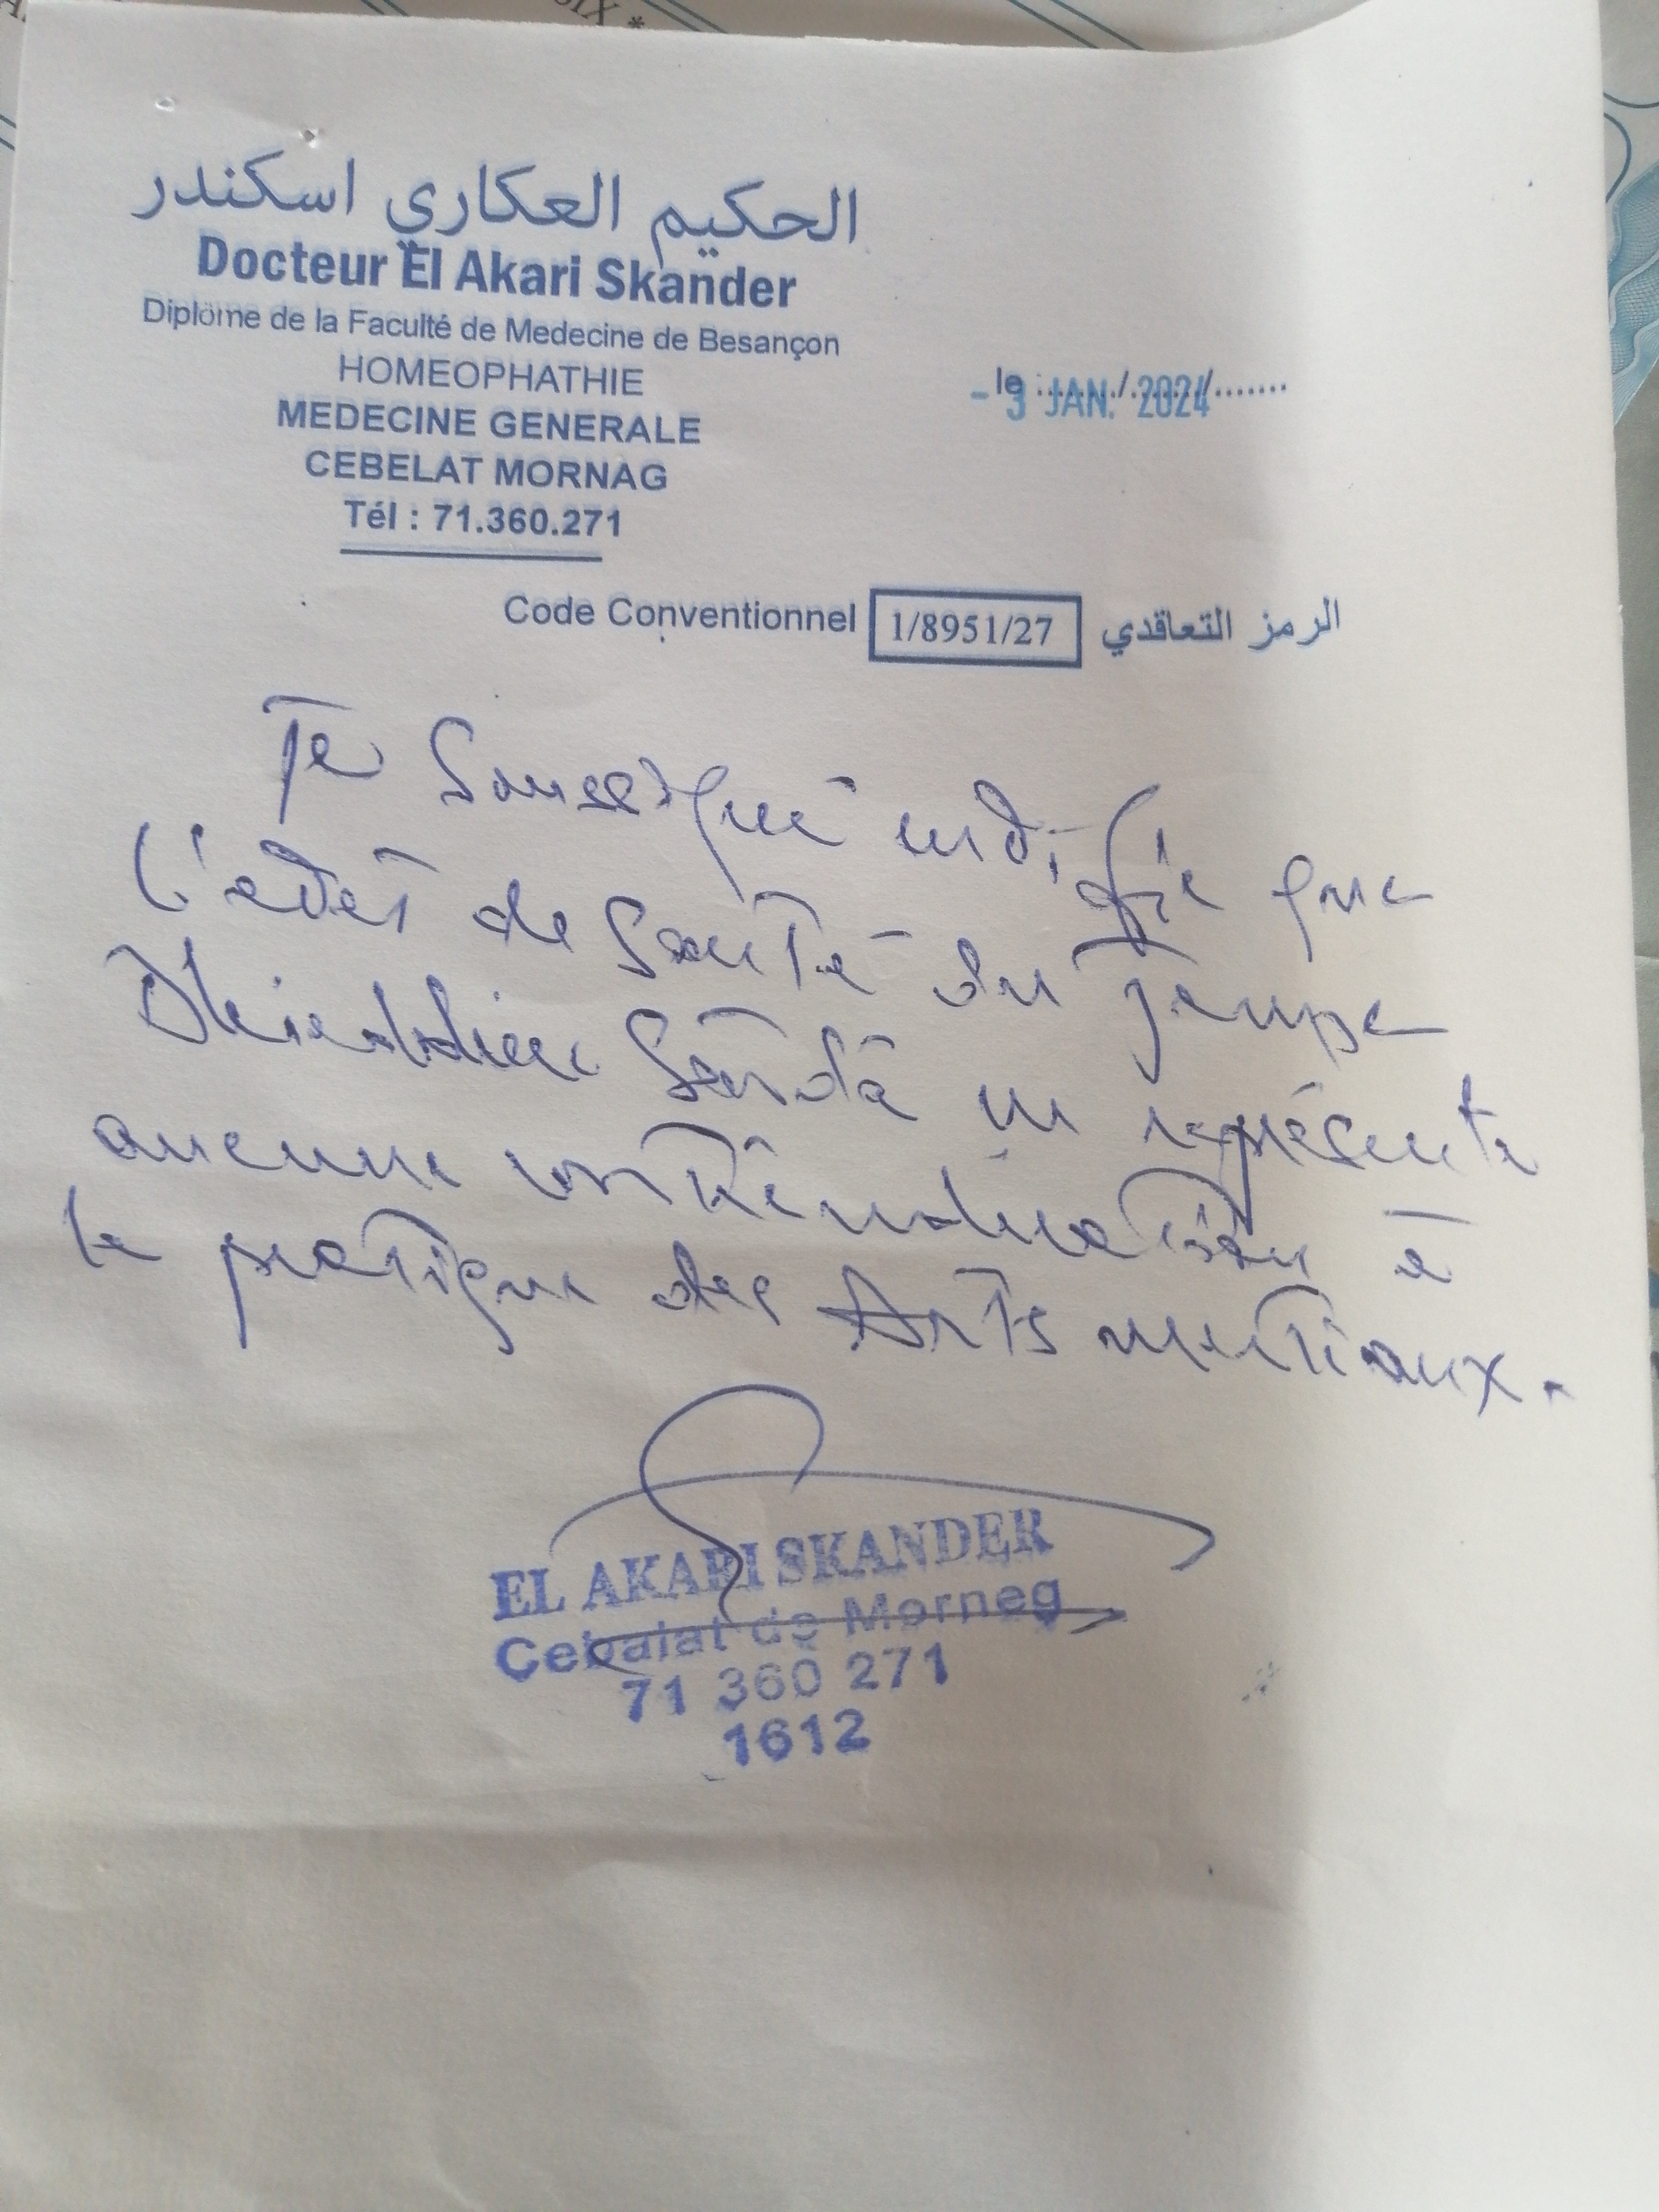 الحكيم العكاري اسكندر
Docteur El Akari Skander
Diplöme de la Faculté de Medecine de Besançon
HOMEOPHATHIE
MEDECINE GENERALE
CEBELAT MORNAG
Tél : 71.360.271
le :....../......../.......
- 3 JAN. 2024
Code Conventionnel 1/8951/27 الرمز التعاقدي
Je soussigné certifie que
l'état de santé du jeune
ne représente
aucune contrindication à
la pratique des Arts martiaux.
EL AKARI SKANDER
Cebalat de Morneg
71 360 271
1612